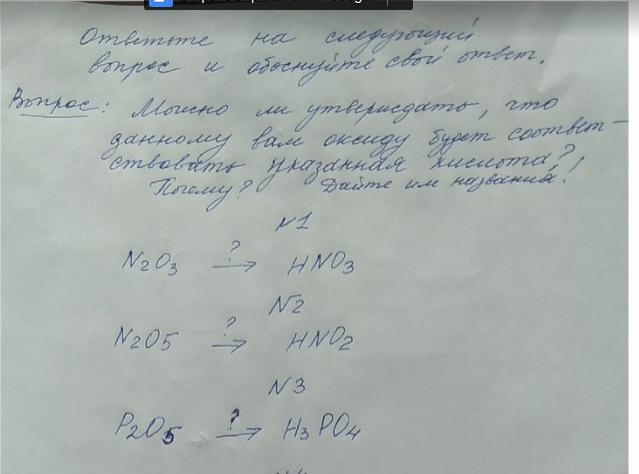 Ответьте на следующий
вопрос и обоснуйте свой ответ.
Вопрос: Можно ли утверждать, что
данному вам оксиду будет соответ-
ствовать указанная кислота?
Почему? Дайте им названия!
N1
N2O3 ? → HNO3
N2
N2O5 ? → HNO2
N3
P2O5 ? → H3PO4